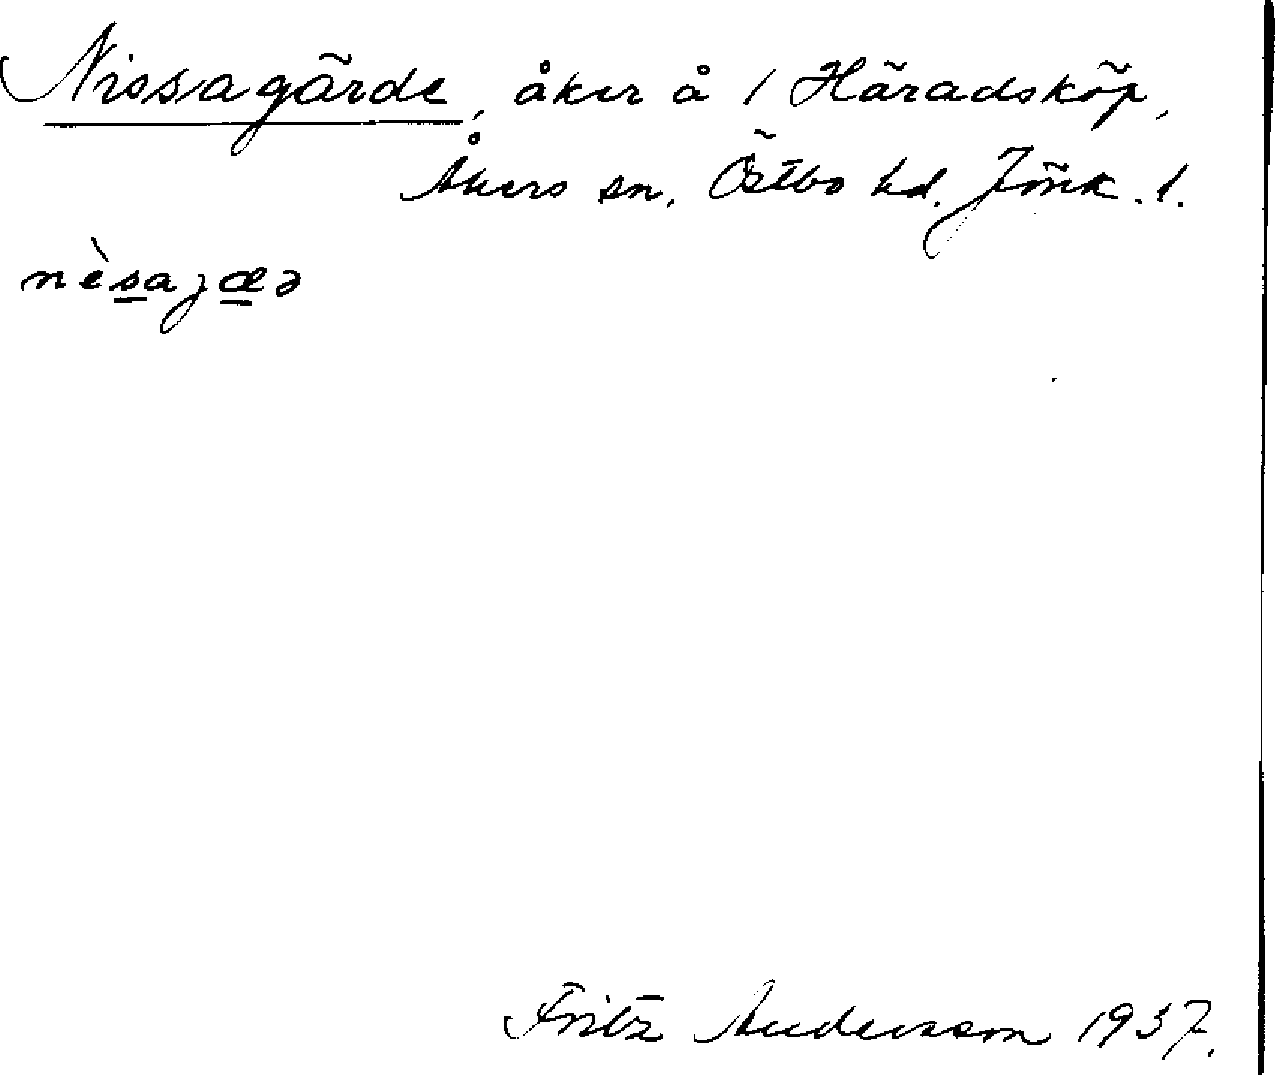 Nissagärde, åker å 1 Häradsköp,
Åkers sn. Östbo hd. Jönk. l.
nèsajæə
Fritz Andersson 1937.